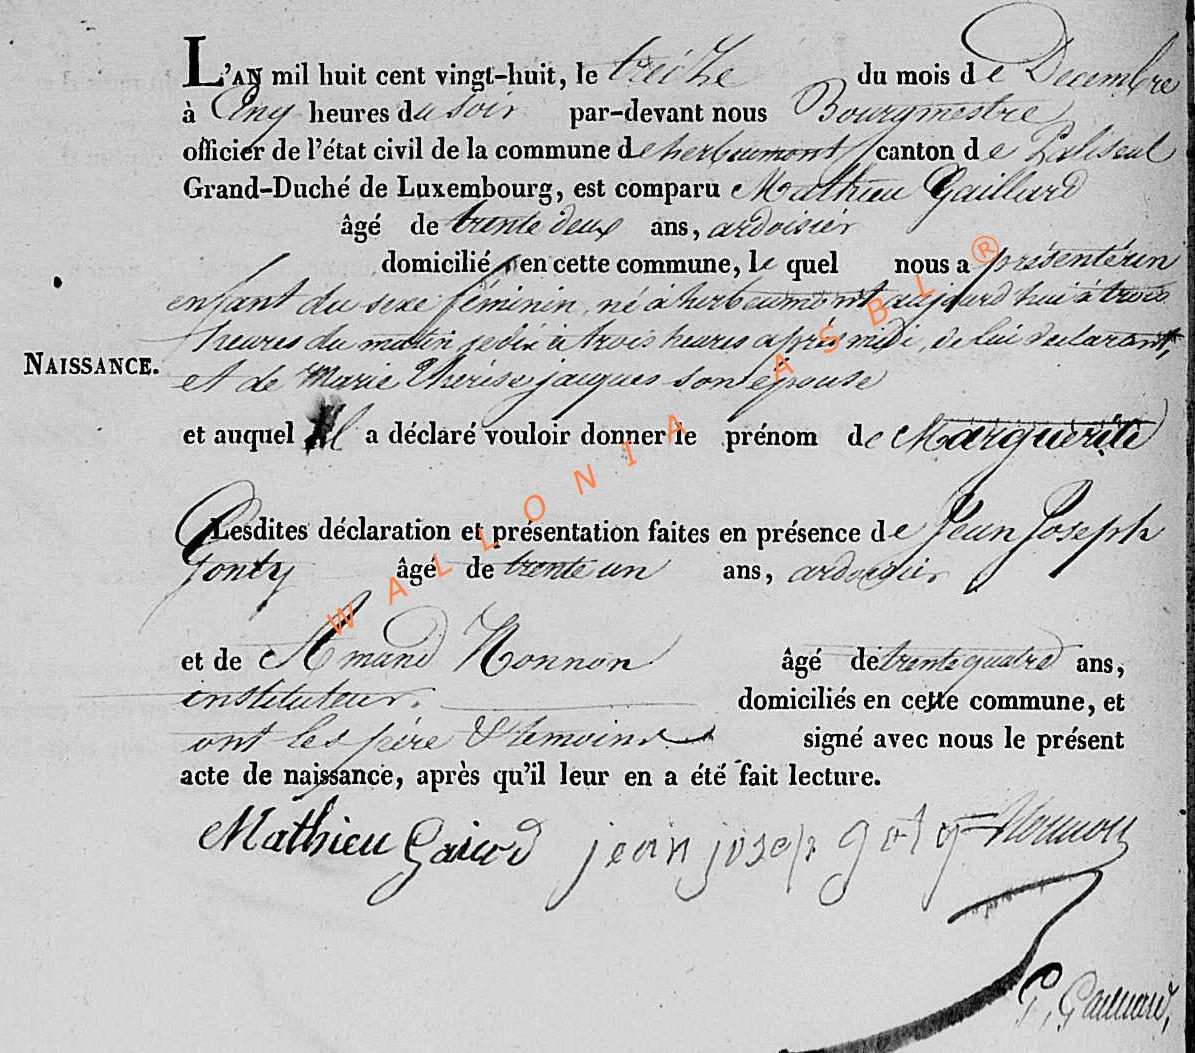 L'AN mil huit cent vingt-huit, le treize du mois de Decembre
à cinq heures du soir par-devant nous Bourgmestre
officier de l'état civil de la commune de herbeumont canton de Paliseul
Grand-Duché de Luxembourg, est comparu Mathieu Gaillard
âgé de trente deux ans, ardoisier
domicilié en cette commune, le quel nous a présenté un
enfant du sexe féminin, né à herbeumont aujourd'hui à trois
heures du matin je dis à trois heures après midi, de lui déclarant,
NAISSANCE.
et de Marie Thérèse jacques son épouse
et auquel Il a déclaré vouloir donner le prénom de Marguerite
Lesdites déclaration et présentation faites en présence de Jean Joseph
Gonty âgé de trente un ans, ardoisier
et de Amand Nonnon âgé de trente quatre ans,
instituteur. domiciliés en cette commune, et
ont les père & temoins signé avec nous le présent
acte de naissance, après qu'il leur en a été fait lecture.
Mathieu Gaiard jean josep goty Nonnon
WALLONIA ASBL ®